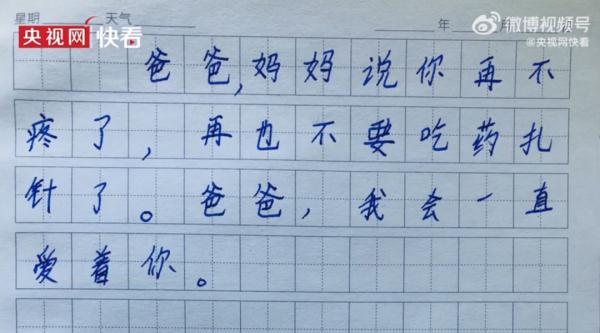 星期 天气 年 月
央视网 快看
微博视频号
@央视网快看
爸爸,妈妈说你再不
疼了,再也不要吃药扎
针了。爸爸,我会一直
爱着你。